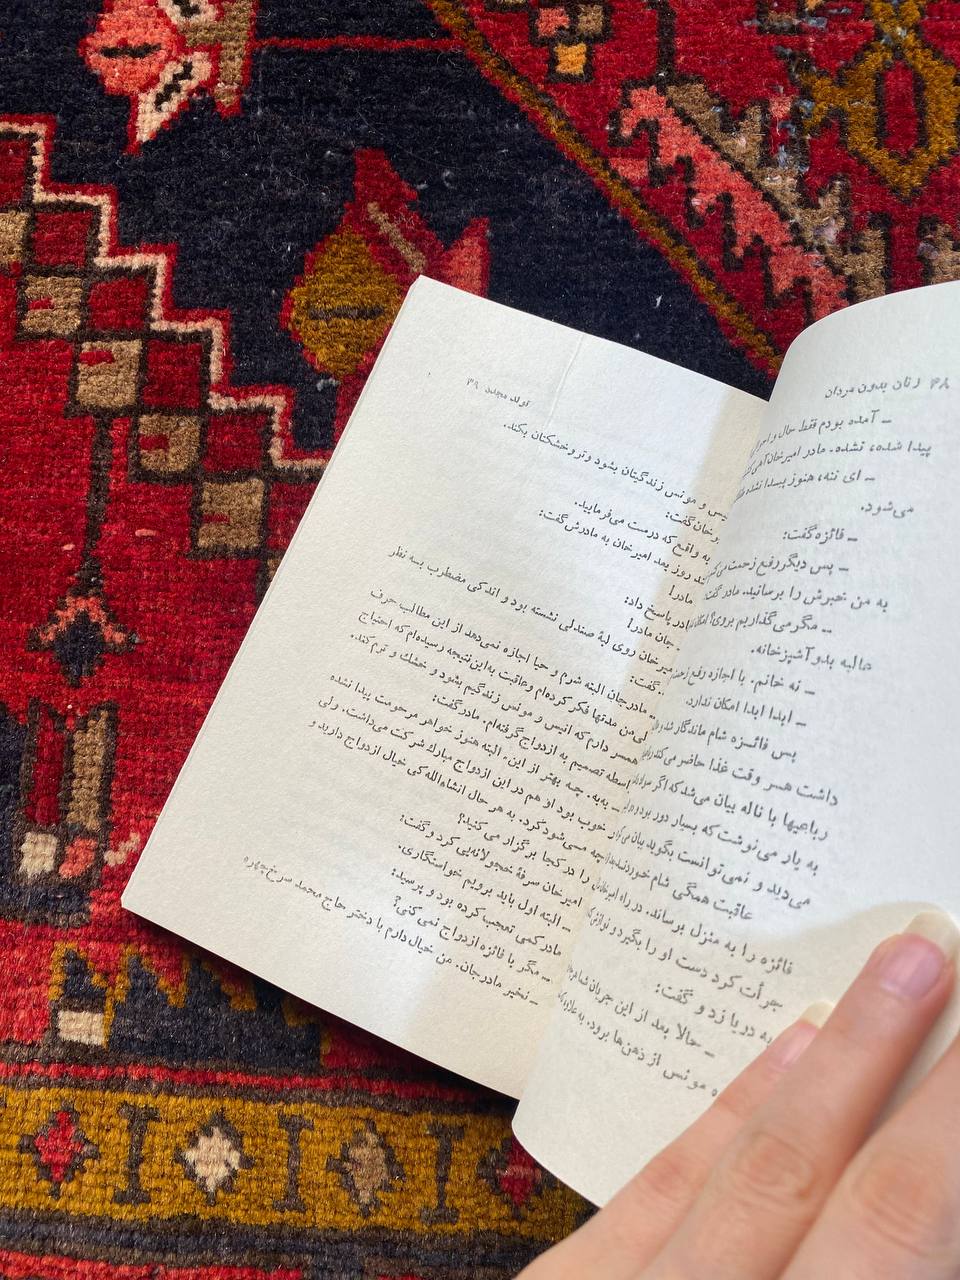 ۳۸ زنان بدون مردان
ـ آمده بودم فقط حال و
پیدا شده، نشده. مادر امیرخان
ـ ای ننه، هنوز پیدا نشده
می‌شود.
ـ فائزه گفت:
ـ پس دیگر رفع زحمت می‌کنم
به من خبرش را برسانید. مادر گفت:
ـ مگر می‌گذاریم بروی؟
عالیه بدو آشپزخانه.
ـ نه خانم. با اجازه رفع زحمت
ـ ابدا ابدا امکان ندارد.
پس فائزه شام ماندگار شد و
داشت هسر وقت غذا حاضر می‌کند
رباعیها با ناله بیان می‌شد که اگر
به یار می‌نوشت که بسیار دور بود و
می‌دید و نمی‌توانست بگوید بیان می‌کرد
عاقبت همگی شام خوردند
فائزه را به منزل برساند. در راه امیرخان
جرأت کرد دست او را بگیرد و
به دریا زد و گفت:
ـ حالا بعد از این جریان
مونس از ذهن‌ها برود. به علاوه
تولد مجدد ۳۹
و مونس زندگیتان بشود و تر و خشکتان بکند.
خان گفت:
به واقع که درست می‌فرمایید.
روز بعد امیرخان به مادرش گفت:
مادر!
پاسخ داد:
جان مادر!
امیرخان روی لبهٔ صندلی نشسته بود و اندکی مضطرب بسه نظر
گفت:
ـ مادرجان البته شرم و حیا اجازه نمی‌دهد از این مطالب حرف
من مدتها فکر کرده‌ام و عاقبت به این نتیجه رسیده‌ام که احتیاج
همسر دارم که انیس و مونس زندگیم بشود و خشک و ترم کند.
تصمیم به ازدواج گرفته‌ام. مادر گفت:
ـ به‌به. چه بهتر از این. البته هنوز خواهر مرحومت پیدا نشده
خوب بود او هم در این ازدواج مبارک شرکت می‌داشت. ولی
چه مسی‌شود کرد. به هر حال انشاءالله کی خیال ازدواج دارید و
را در کجا برگزار می کنید؟
امیرخان سرفهٔ خجولانه‌یی کرد و گفت:
ـ البته اول باید برویم خواستگاری.
مادر کمی تعجب کرده بود و پرسید:
ـ مگر با فائزه ازدواج نمی کنی؟
ـ نخیر مادرجان. من خیال دارم با دختر حاج محمد سرخ‌چهره